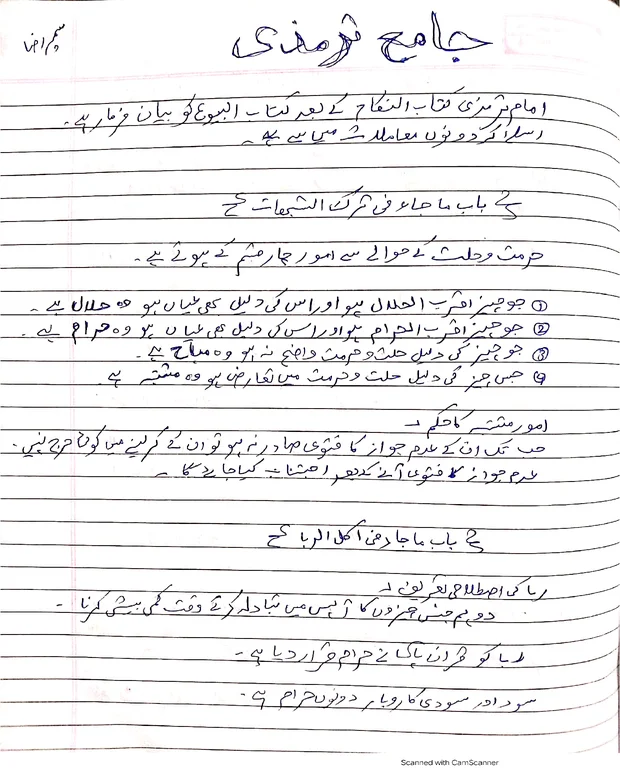 جامع ترمذی
امام ترمذی کتاب النکاح کے بعد کتاب البیوع کو بیان فرما رہے۔
اسلئے کہ دونوں معاملات میں سے ہے۔
باب ماجاء فی ترک الشبھات
حرمت وحلت کے حوالے سے امور چار قسم کے ہوتے ہے۔
① جو چیز اقرب الحلال ہو اور اس کی دلیل بھی عیاں ہو وہ حلال ہے۔
② جو چیز اقرب الحرام ہو اور اسکی دلیل بھی عیاں ہو وہ حرام ہے۔
③ جو چیز کی دلیل حلت و حرمت واضح نہ ہو وہ مباح ہے۔
④ جس چیز کی دلیل حلت و حرمت میں تعارض ہو وہ مشتبہ ہے
امور مشتبہ کا حکم
جب تک ان کے عدم جواز کا فتوی صادر نہ ہو تو ان کے کرلینے میں کوئی حرج نہیں۔
عدم جواز کا فتوی آنے کے بعد اجتناب کیا جائے گا۔
باب ماجاء فی اکل الربا
ربا کی اصطلاحی تعریف
دو ہم جنس چیزوں کا آپس میں تبادلہ کرتے وقت کمی بیشی کرنا۔
ربا کو قرآن پاک نے حرام قرار دیا ہے۔
سود اور سودی کاروبار دونوں حرام ہے۔
Scanned with CamScanner